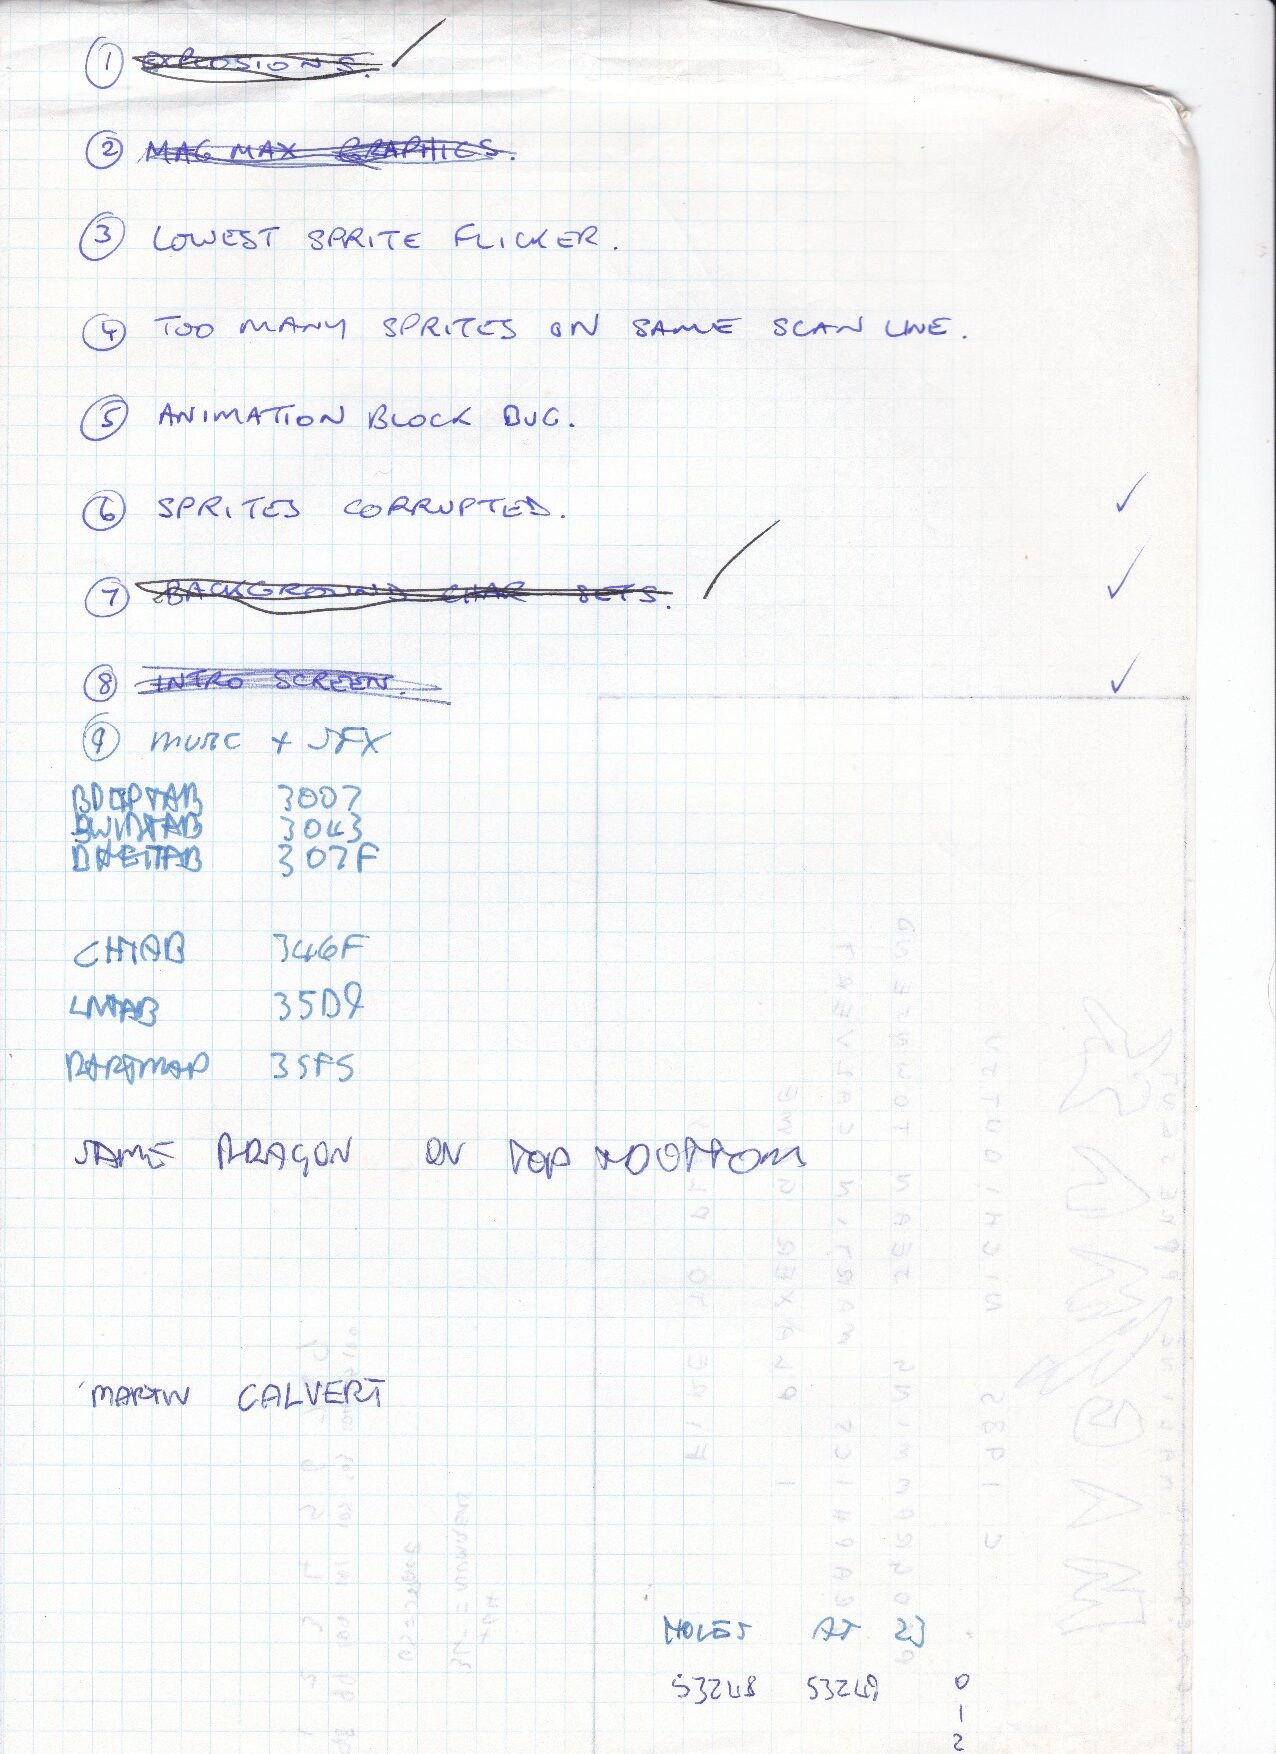 1 EXPLOSIONS.
2 MAG MAX GRAPHICS.
3 LOWEST SPRITE FLICKER.
4 TOO MANY SPRITES ON SAME SCAN LINE.
5 ANIMATION BLOCK BUG.
6 SPRITES CORRUPTED.
7 BACKGROUND CHAR SETS.
8 INTRO SCREEN.
9 MUSIC + SFX
3007
3043
307F
CHTAB 346F
LMTAB 35D9
35F5
SAME DRAGON ON TOP + BOTTOM
MARTIN CALVERT
HOLES AT 23
53248 53249 0
1
2